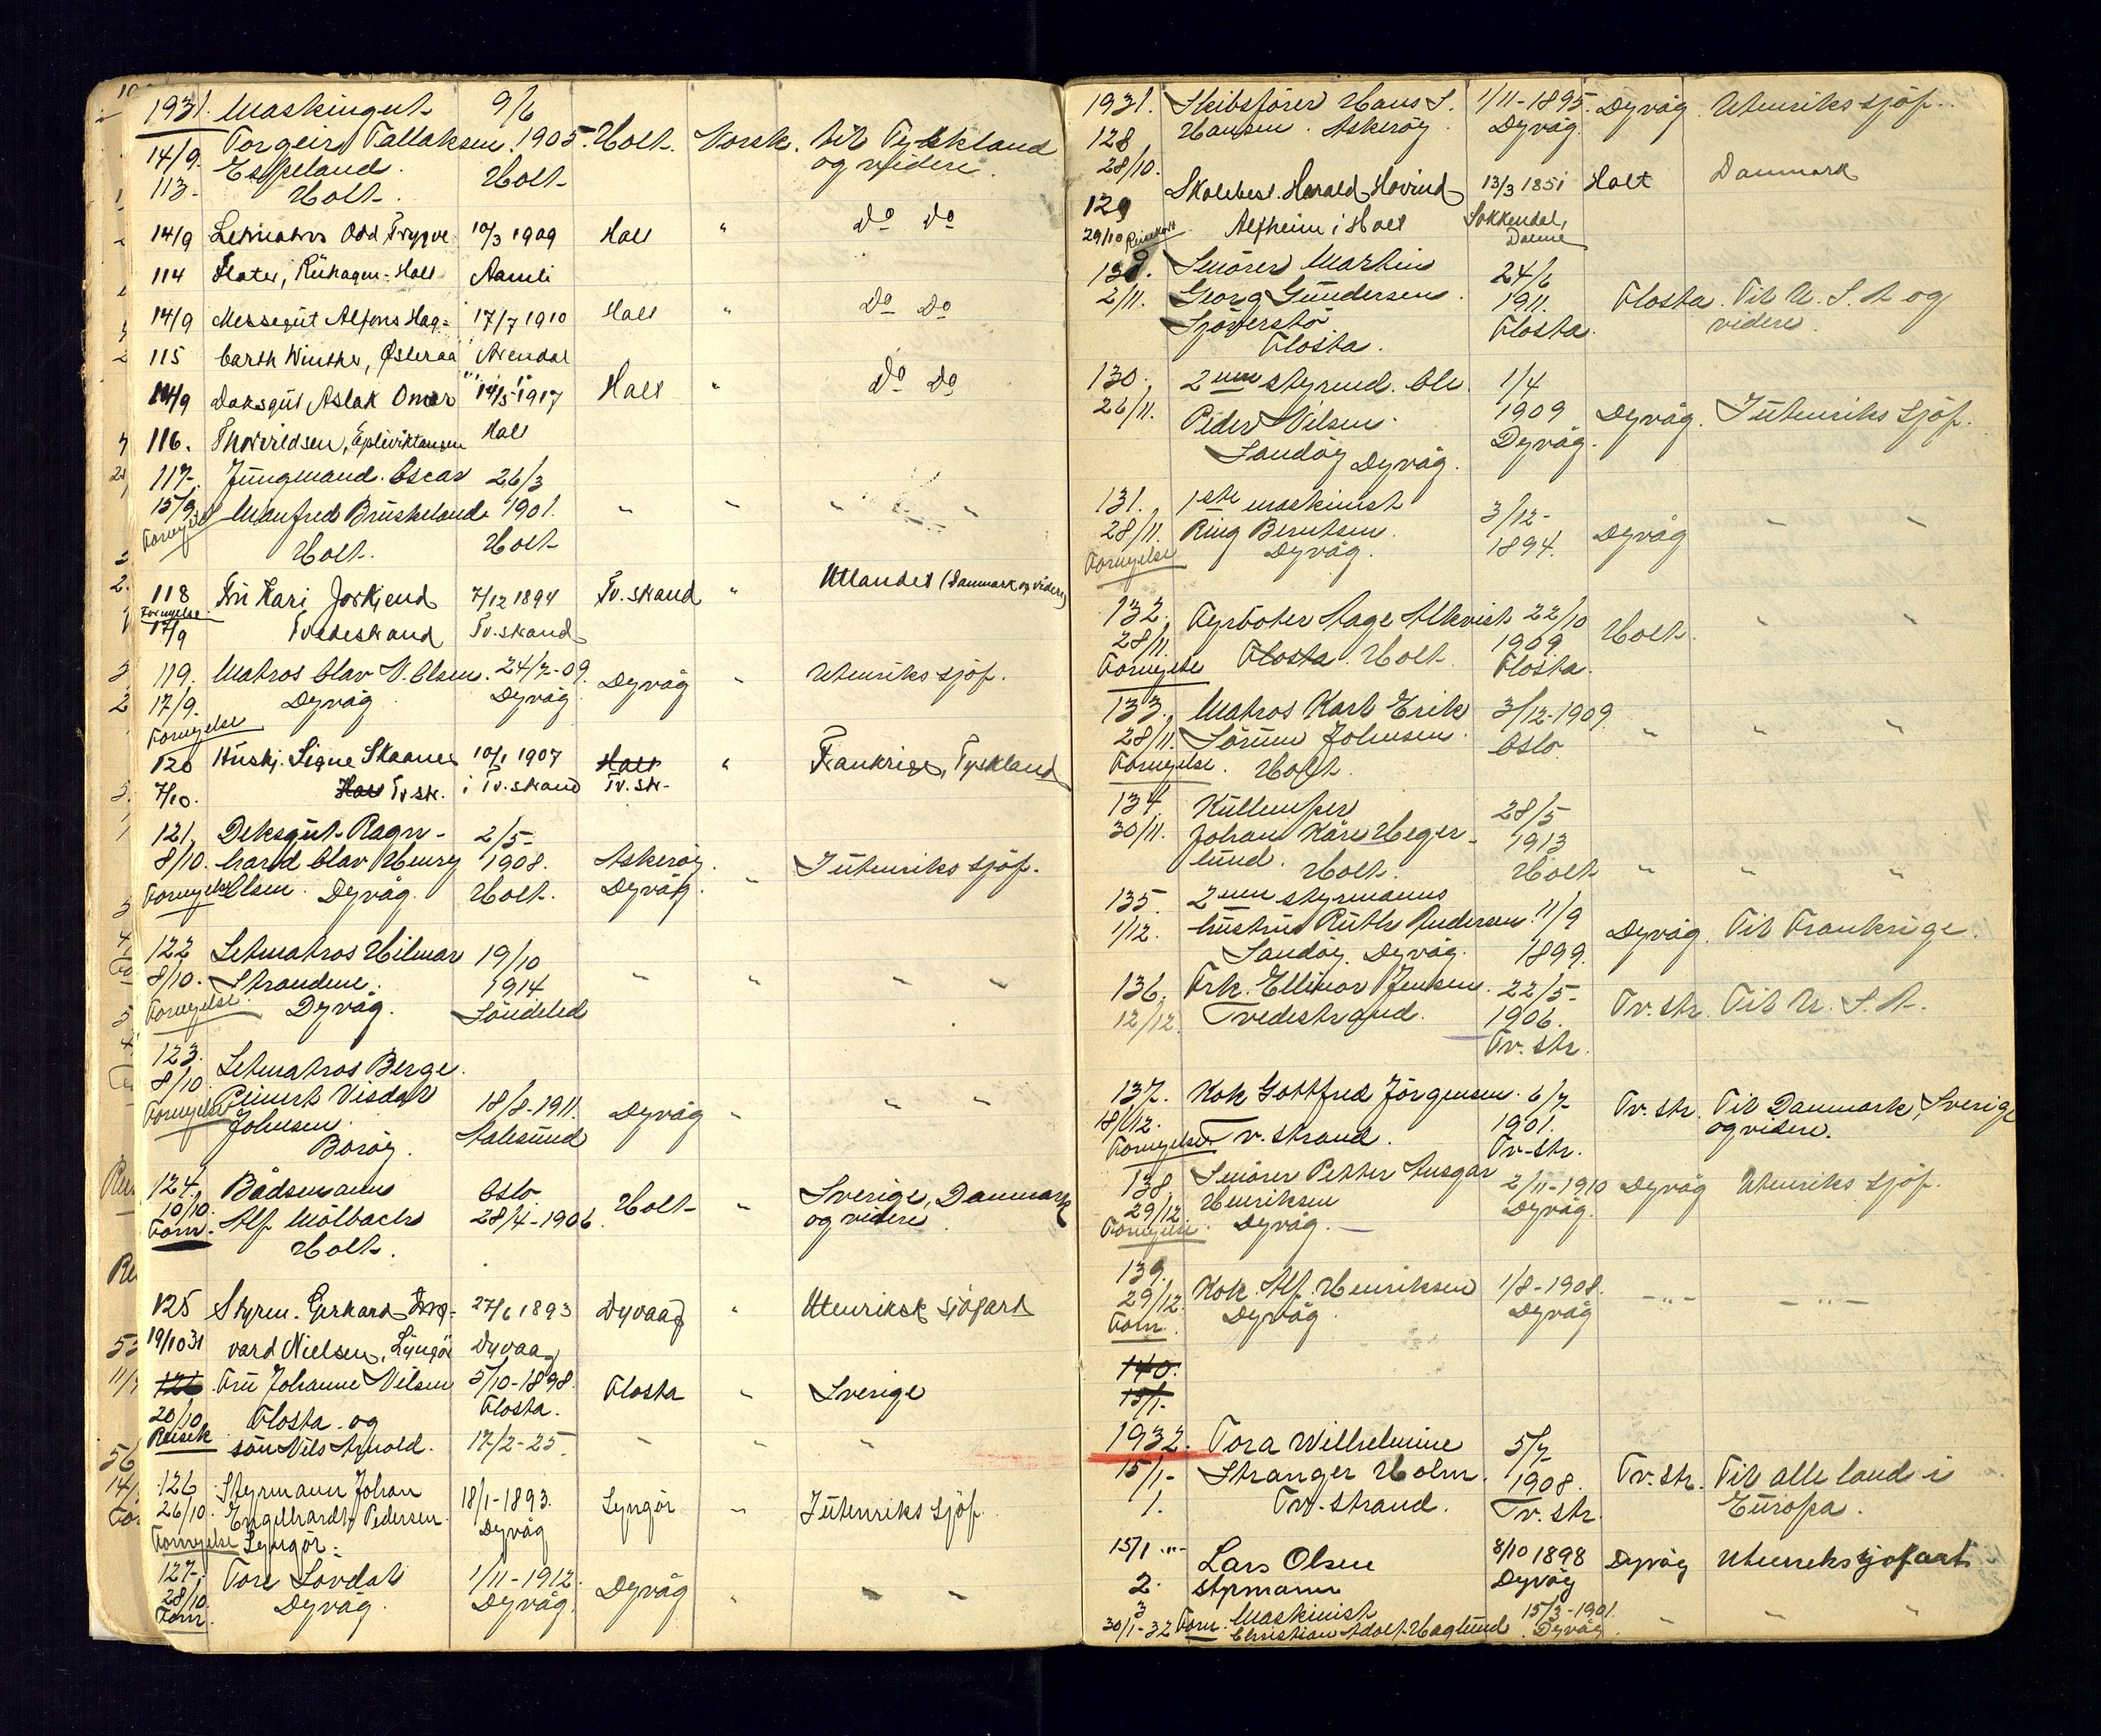 1931. Maskingut 9/6
14/9. Torgeir Tallaksen 1905. Holt. Norsk. til Tyskland
Espeland. og videre.
113. Holt. Holt
14/9 Letmatros Odd Trygve 10/3 1909 Holt " Do Do
114 Slater, Holt Aamli
14/9 Messegut Alfons Hag- 17/7 1910 Holt " Do Do
115 barth Winther, Østeraa Arendal
14/9 Daksgut Aslak Omar 14/5 1917 Holt " Do Do
116. Thorvildsen, Holt
117. Jungmand Oscar 26/3
15/9 Manfred Bruskeland 1901. " " " "
Fornyelse Holt. Holt
118 Fru Kari Jorkjend 7/12 1894 Tv.strand " Utlandet (Danmark og videre)
Fornyelse
17/9 Tvedestrand Tv.strand
119. Matros Olav N. Olsen. 24/7-09. Dyvåg " Utenriks sjöf.
17/9. Dyvåg Dyvåg
Fornyelse
120 Hushj. Signe Skaanes 10/1 1907 Holt " Frankrige, Tyskland
7/10. Holt Tv.str. i Tv.strand Tv.str.
121. Deksgut Ragn- 2/5-
8/10. vard Olav Henry 1908. Askeröy. " I utenriks sjöf.
Fornyelse Olsen. Dyvåg. Holt. Dyvåg.
122 Letmatros Hilmar 19/10
8/10. Strandene. 1914 " " " "
Fornyelse. Dyvåg. Söndeled
123. Letmatros Berge
8/10. Reinert Visdal 18/8-1911. Dyvåg " " "
Fornyelse Johnsen. Aalesund
Boröy.
124. Bådsmann Oslo Holt " Sverige, Danmark
10/10. Alf Mölbach 28/4-1906. og videre.
Forn. Holt.
125 Styrm. Gerhard Ing- 27/6 1893 Dyvaag " Utenriksk sjöfart
19/10 31 vard Nielsen, Lyngör Dyvaag
126 Fru Johanne Nilsen 5/10-1898. Flosta " Sverige
20/10 Flosta og Flosta.
Reisek sön Nils Arnold. 17-/2-25. " " "
126 Styrmann Johan
26/10. Engelhardt Pedersen 18/1-1893. Lyngör " I utenriks sjöf.
Fornyelse Lyngör. Dyvåg
127. Tore Lövdal 1/11-1912. Dyvåg " " "
28/10. Dyvåg. Dyvåg.
Forn.
1931. Skibsförer Hans S. 1/11-1895. Dyvåg. Utenriks sjöf.
128 Hansen. Askeröy. Dyvåg.
28/10.
129 Skolebest. Harald Hovind 13/3 1851 Holt Danmark
29/10 Reisekort Alfheim i Holt Sokkendal,
Dalene
130. Smörer Martin 24/6
2/11. Georg Gundersen. 1911. Flosta. Til U.S.A og
Sjöverstö. Flosta. videre.
Flosta.
130. 2nen styrmd. Ole 1/4
26/11. Peder Nilsen. 1909 Dyvåg. I utenriks sjöf.
Sandöy Dyvåg. Dyvåg.
131. 1ste maskinist 3/12-
28/11. Ring Berntsen. 1894. Dyvåg " "
Fornyelse Dyvåg.
132. Fyrböter Aage Alkvist 22/10
28/11. 1909 Holt. " "
Fornyelse Flosta. Holt. Flosta.
133. Matros Karl Erik 3/12-1909.
28/11. Sörum Johnsen. Oslo " " "
Fornyelse. Holt.
134. Kullemper 28/5
30/11. Johan Kåre Heger- 1913
lund. Holt. Holt " " "
135. 2nen styrmanns
1/12. hustru Ruth Andersen. 11/9 Dyvåg. Til Frankrige.
Sandöy. Dyvåg. 1899.
136. Frk. Ellinor Jensen. 22/5- Tv.str. Til U.S.A.
12/12. Tvedestrand. 1906.
Tv.str.
137. Kok Gottfred Jörgensen. 6/7- Tv.str. Til Danmark, Sverige
18/12. 1901. og videre.
Fornyelse Tv.strand. Tv-str.
138 Smörer Petter Ansgar 2/11-1910 Dyvåg Utenriks sjöf.
29/12. Henriksen Dyvåg.
Fornyelse. Dyvåg.
139. Kok. Alf. Henriksen 1/8-1908. -"- -"-
29/12. Dyvåg. Dyvåg
Forn.
140.
15/1.
1932. Tora Wilhelmine 5/7-
15/1- Stranger Holm. 1908. Tv.str. Til alle land i
1. Tv.strand. Tv.str. Europa.
15/1 -"- Lars Olsen 8/10 1898 Dyvåg Utenriks sjofart
2. styrmann Dyvåg
3 Maskinist 15/3-1901.
30/1-32 Forn. Christian Adolf Haglund. Dyvåg. " " "